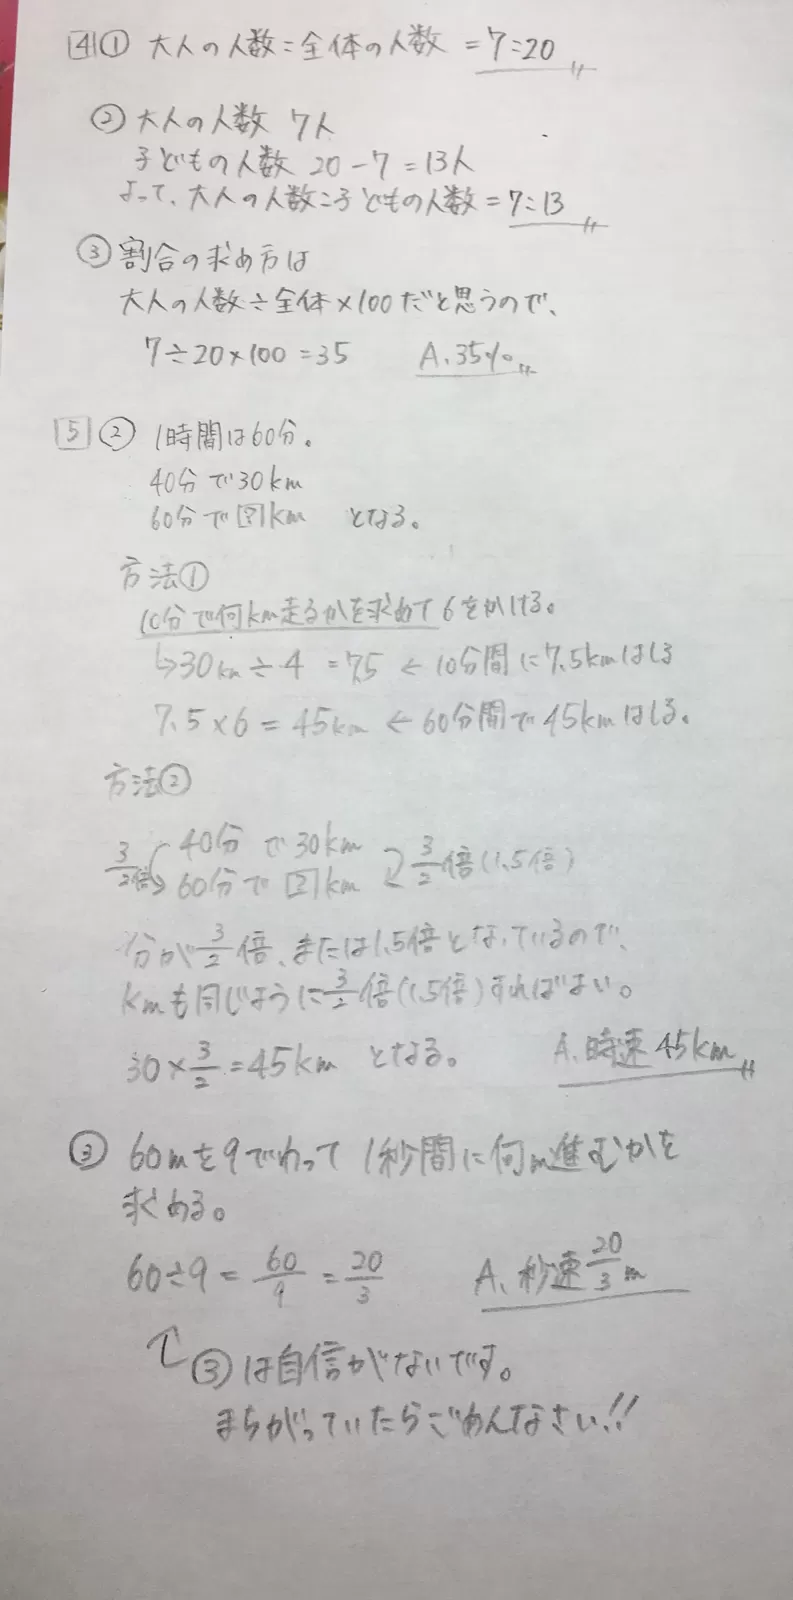 4 ① 大人の人数:全体の人数 = 7:20
② 大人の人数 7人
子どもの人数 20-7=13人
よって、大人の人数:子どもの人数=7:13
③ 割合の求め方は
大人の人数÷全体×100だと思うので、
7÷20×100=35 A、35%
5 ② 1時間は60分。
40分で30km
60分で?km となる。
方法①
10分で何km走るかを求めて6をかける。
↳30km÷4=7.5 ← 10分間に7.5kmはしる
7.5×6=45km ← 60分間で45kmはしる。
方法②
3/2倍 40分で30km 3/2倍(1.5倍)
60分で?km
分が3/2倍、または1.5倍となっているので、
kmも同じように3/2倍(1.5倍)すればよい。
30×3/2=45km となる。 A、時速45km
③ 60mを9でわって1秒間に何m進むかを
求める。
60÷9=60/9=20/3 A、秒速20/3m
③は自信がないです。
まちがっていたらごめんなさい!!